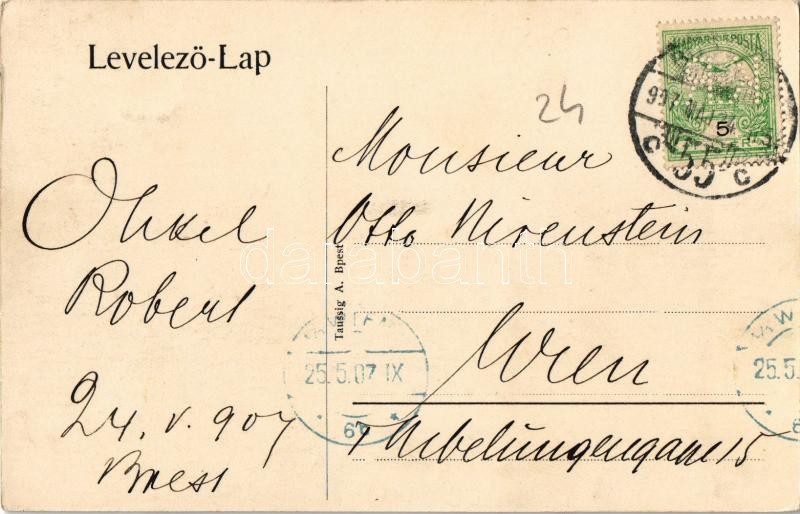 Levelező-Lap
MAGYAR KIR. POSTA
5
907 MÁJ
C 55 C
24
Monsieur
Otto Nirenstein
Wien
I Nibelungengasse 15
Onkel
Robert
24. V. 907
Bpest
Taussig A. Bpest
WIEN
25.5.07 IX
25.5.
darabanth